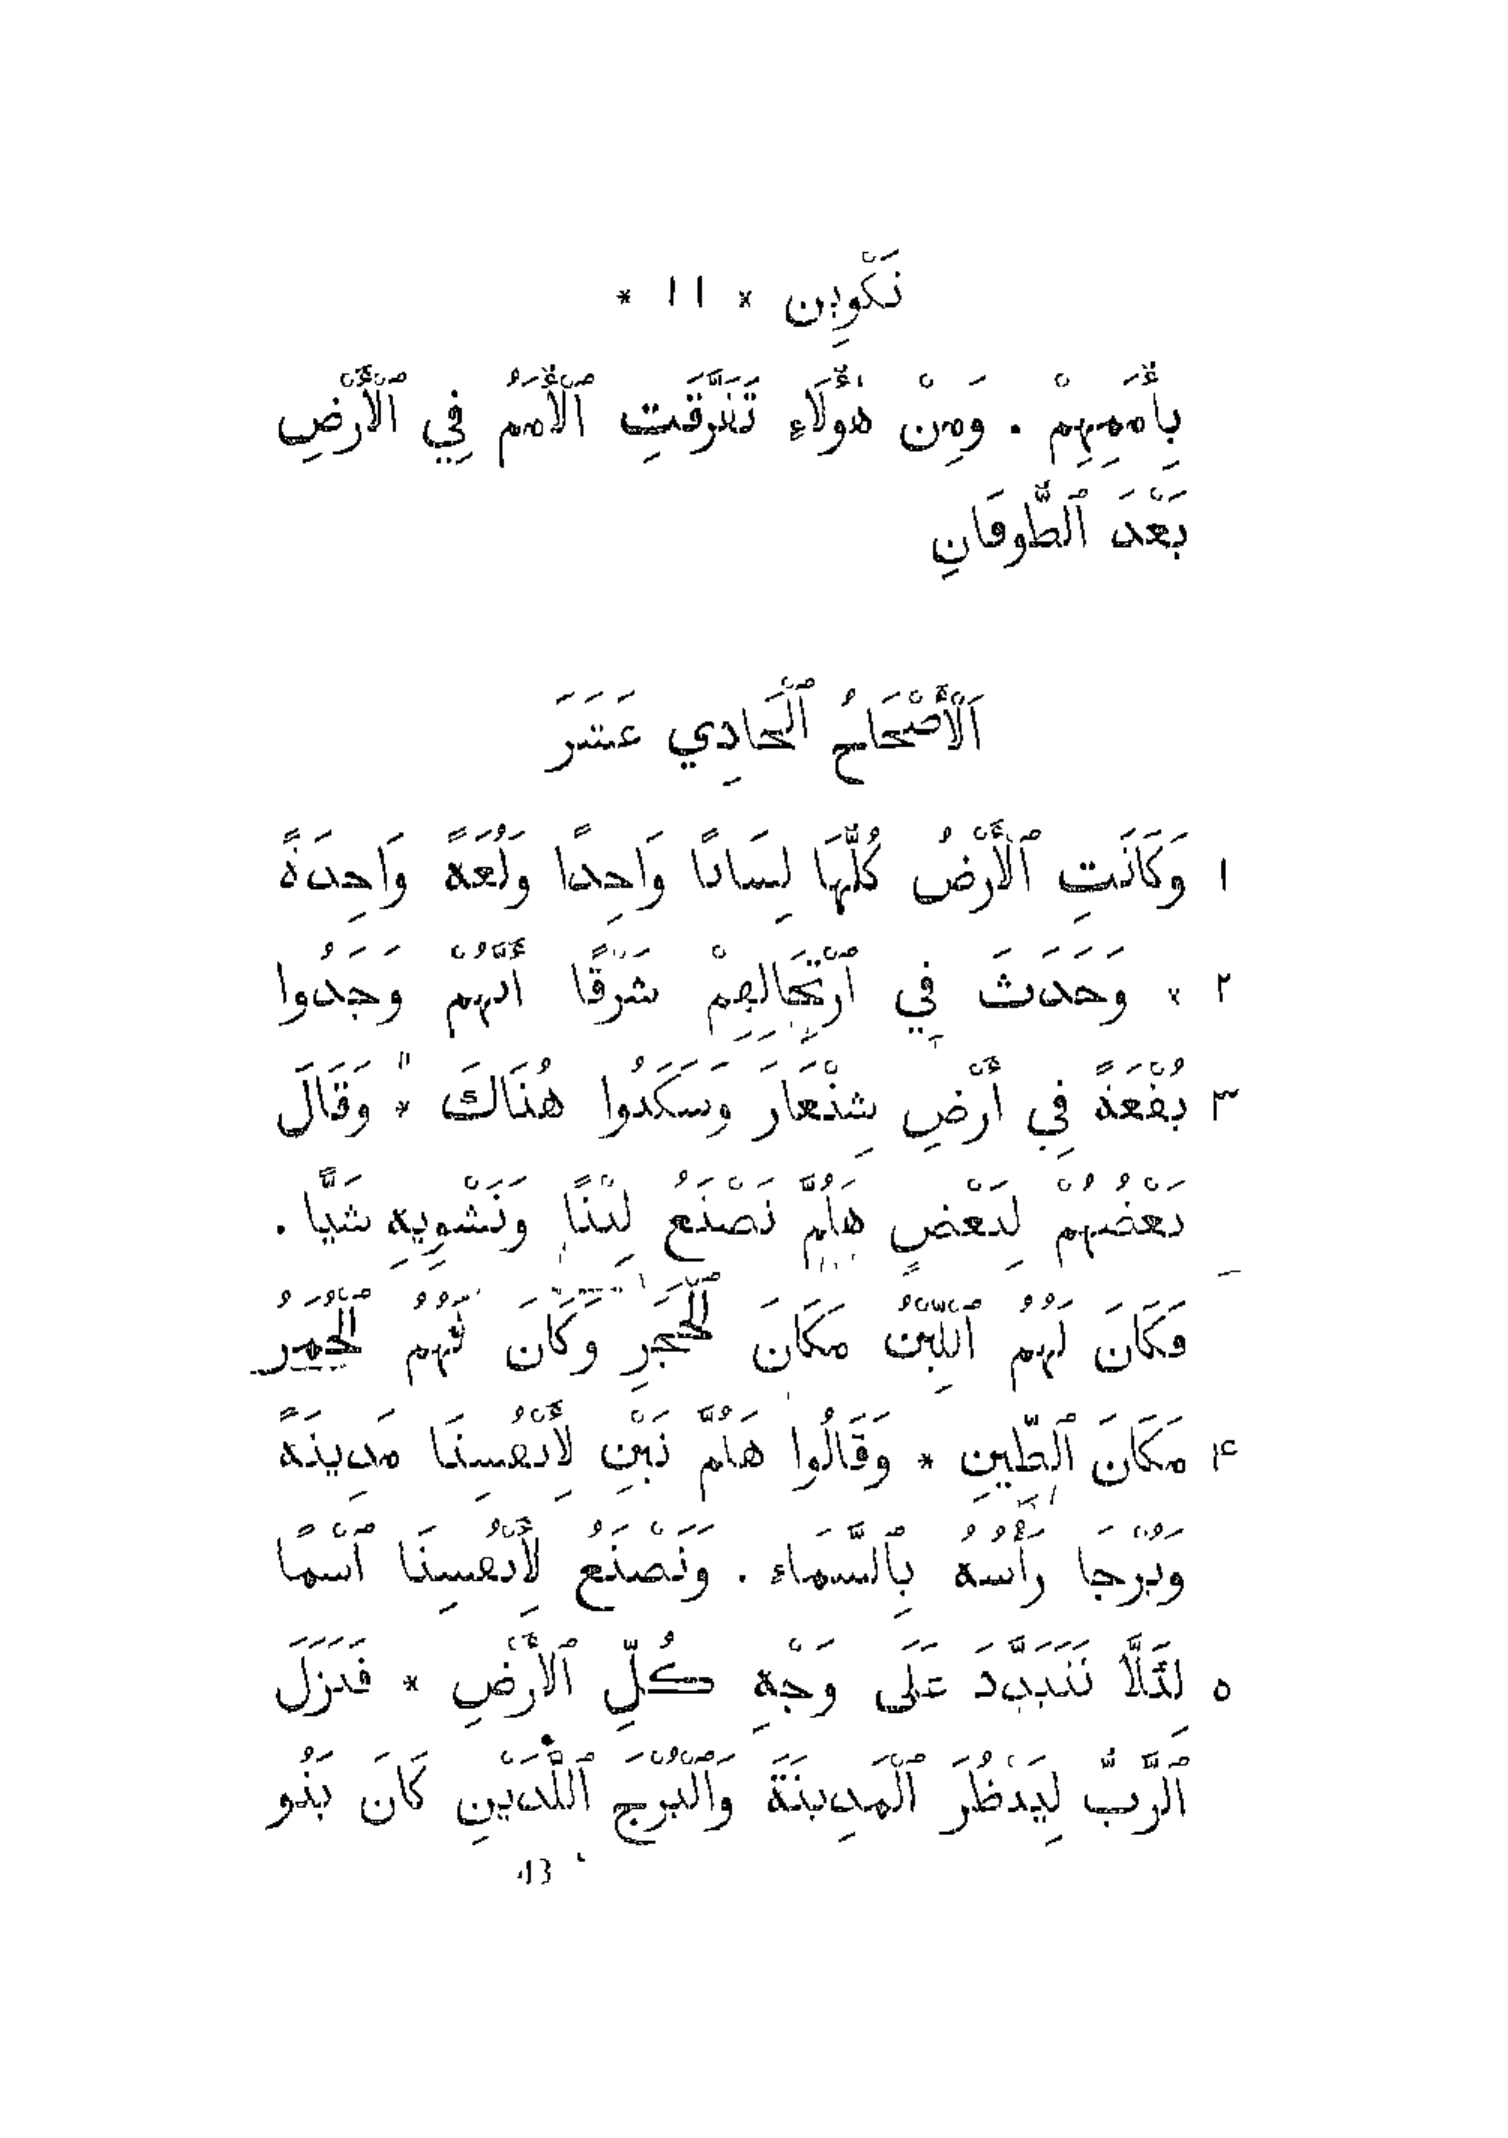 تَكْوِين * ١١ *
بِأُمَمِهِمْ . وَمِنْ هٰؤُلَاءِ تَفَرَّقَتِ ٱلْأُمَمُ فِي ٱلْأَرْضِ
بَعْدَ ٱلطُّوفَانِ
اَلْأَصْحَاحُ ٱلْحَادِي عَشَرَ
١ وَكَانَتِ ٱلْأَرْضُ كُلُّهَا لِسَانًا وَاحِدًا وَلُغَةً وَاحِدَةً
٢ * وَحَدَثَ فِي ٱرْتِحَالِهِمْ شَرْقًا أَنَّهُمْ وَجَدُوا
٣ بُقْعَةً فِي أَرْضِ شِنْعَارَ وَسَكَنُوا هُنَاكَ * وَقَالَ
بَعْضُهُمْ لِبَعْضٍ هَلُمَّ نَصْنَعُ لِبْنًا وَنَشْوِيهِ شَيًّا .
فَكَانَ لَهُمُ ٱللِّبْنُ مَكَانَ ٱلْحَجَرِ وَكَانَ لَهُمُ ٱلْحُمَرُ
٤ مَكَانَ ٱلطِّينِ * وَقَالُوا هَلُمَّ نَبْنِ لِأَنْفُسِنَا مَدِينَةً
وَبُرْجًا رَأْسُهُ بِٱلسَّمَاءِ . وَنَصْنَعُ لِأَنْفُسِنَا ٱسْمًا
٥ لِئَلَّا نَتَبَدَّدَ عَلَى وَجْهِ كُلِّ ٱلْأَرْضِ * فَنَزَلَ
ٱلرَّبُّ لِيَنْظُرَ ٱلْمَدِينَةَ وَٱلْبُرْجَ ٱللَّذَيْنِ كَانَ بَنُو